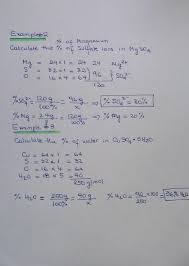 Example #2
% of Magnesium
Calculate the % of Sulfate ions in MgSO4
Mg = 24 x 1 = 24 24 Mg2+
S = 32 x 1 = 32
O = 16 x 4 = 64 96 SO4 2-
120
%SO4 2- = 120g/100% = 96g/x = % SO4 2- = 80%
%Mg = 120g/100% = 24g/x = % Mg = 20%
Example #3
Calculate the % of water in CuSO4 · 5H2O
Cu = 64 x 1 = 64
S = 32 x 1 = 32
O = 16 x 4 = 64
H2O = 18 x 5 = 90
250g/mol
% H2O = 250g/100% = 90g/x % H2O = 90 x 100/250 = 36%